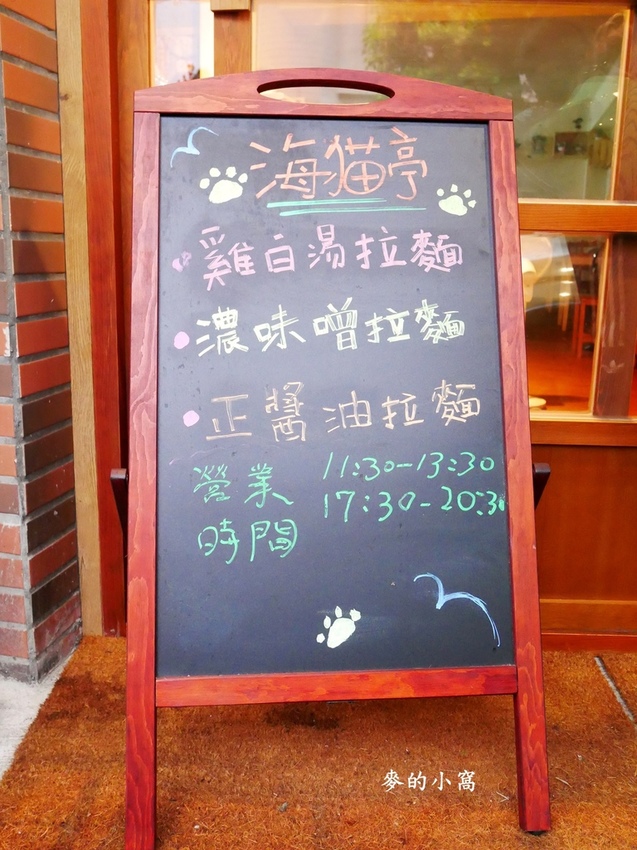 海猫亭
雞白湯拉麵
濃味噌拉麵
正醬油拉麵
營業時間
11:30-13:30
17:30-20:30
麥的小窩